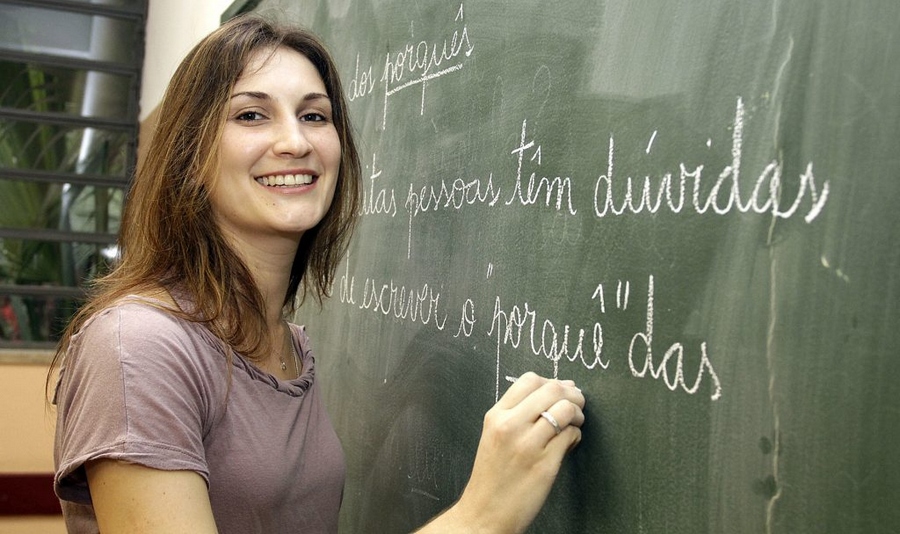 dos porquês
pessoas têm dúvidas
de escrever o "porquê" das